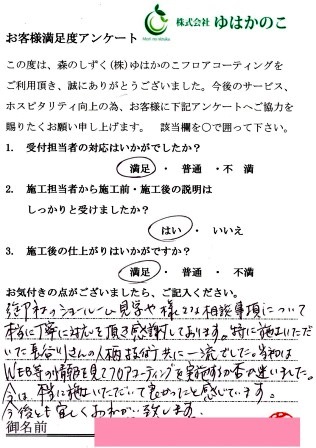 株式会社 ゆはかのこ
お客様満足度アンケート
この度は、森のしずく(株)ゆはかのこフロアコーティングを
ご利用頂き、誠にありがとうございました。今後のサービス、
ホスピタリティ向上の為、お客様に下記アンケートへご協力を
賜りたくお願い申し上げます。 該当欄を○で囲って下さい。
1. 受付担当者の対応はいかがでしたか?
満足 ・ 普通 ・ 不満
2. 施工担当者から施工前・施工後の説明は
しっかりと受けましたか?
はい ・ いいえ
3. 施工後の仕上がりはいかがですか?
満足 ・ 普通 ・ 不満
お気付きの点がございましたら、ご記入ください。
のショールーム見学や様々な相談事項について
本当に丁寧に対応を頂き感謝しております。特に施工いただ
いた長谷川さんの人柄、技術共に一流でした。当初は
WEB等の情報を見てフロアコーティングを実施するか否か迷いました。
今は、本当に施工いただいて良かったと感じています。
今後とも宜しくおねがい致します。
御名前